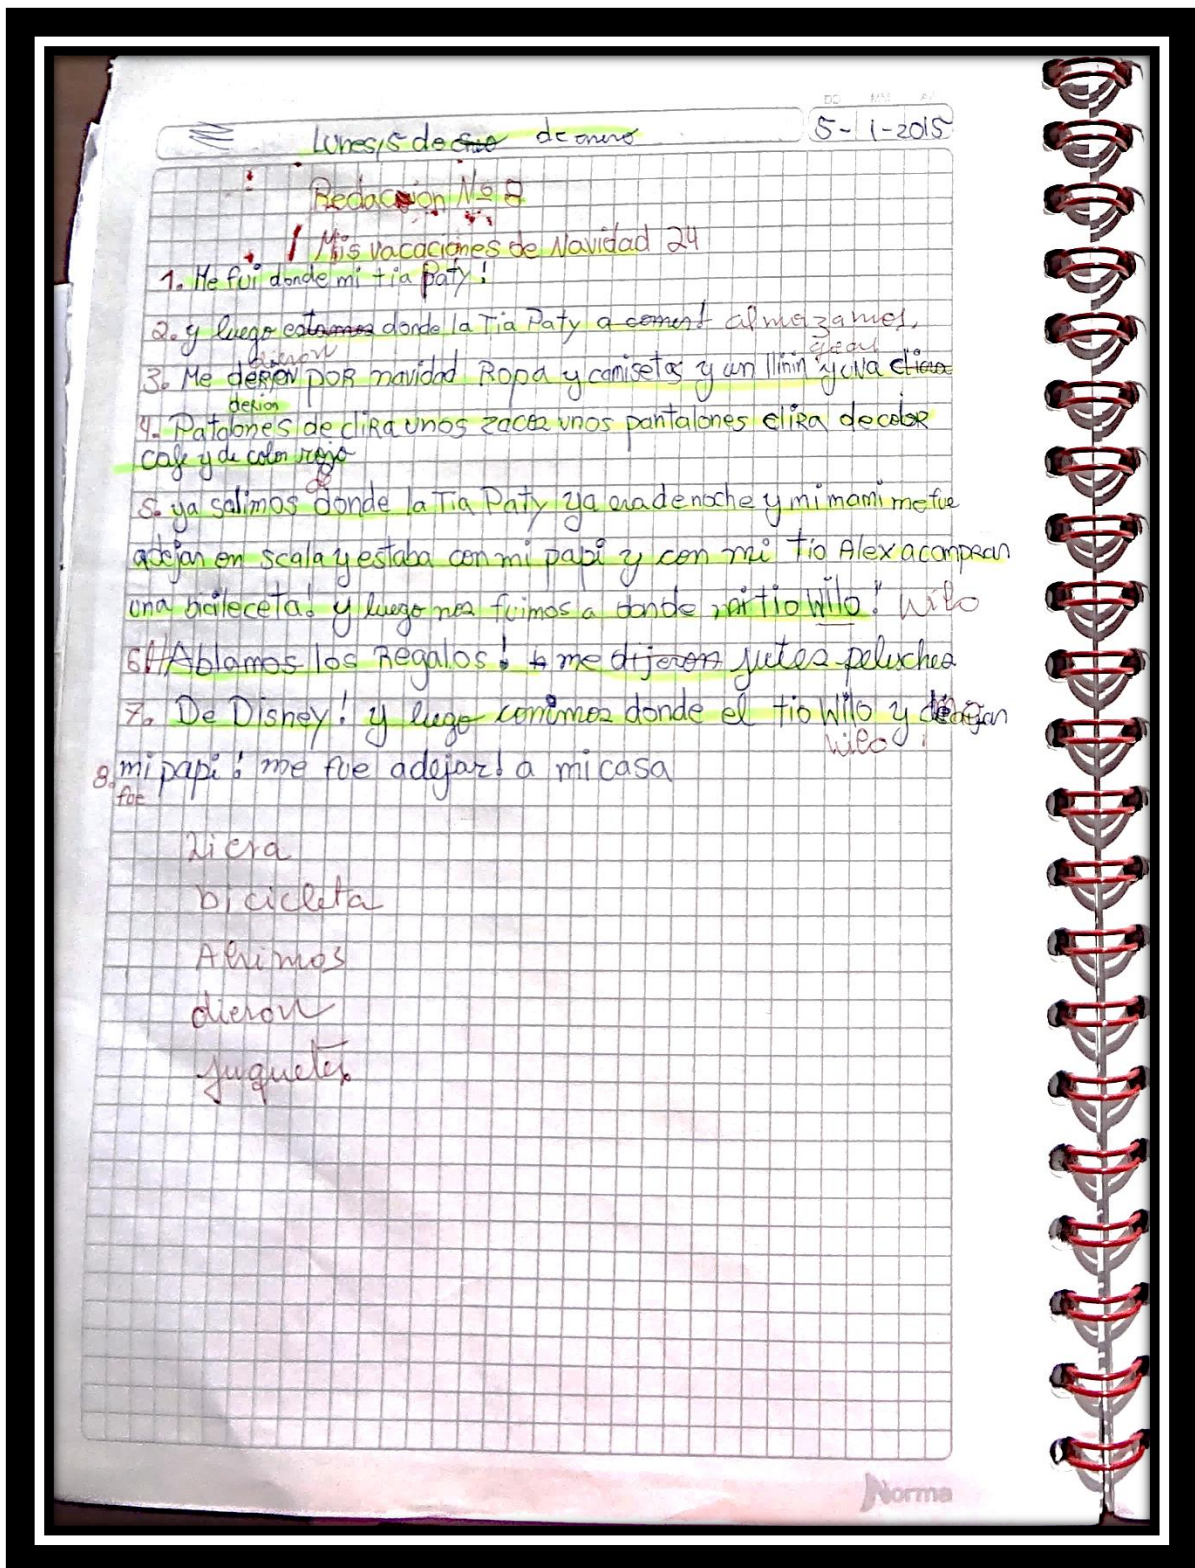 DD MM
Lunes, 5 de de enero
5-1-2015
Redacion No 8
Mis vacaciones de Navidad 24
1. Me fui donde mi tia Paty!
2. y luego estamos donde la Tia Paty a comer! almozamos.
dieron
jean
3. Me derien POR navidad Ropa y camisetas y un llinin y una
derion
4. Patalones de clira unos zacoz unos pantalones elira de coloR
cafe y de color rojo
de
5. ya salimos donde la Tia Paty ya era de noche y mi mami me fue
adejar en scala y estaba con mi papi y con mi tio Alex acompran
una bicileceta! y luego nos fuimos a donde mi tio Wilo! Wilo
6. Ablamos los Regalos! me dijeron jutes peluches
7. De Disney! y luego comimos donde el tio Wilo y
Wilo
8. mi papi! me fue adejar! a mi casa
fue
Licra
bicicleta
Abrimos
dieron
juguetes
Norma